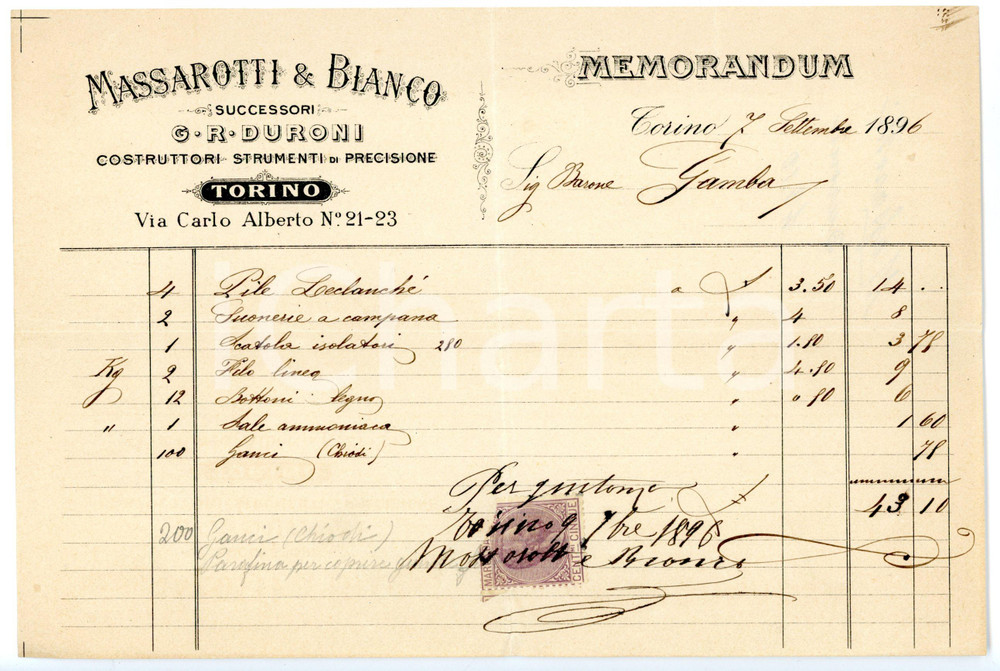 MASSAROTTI & BIANCO
SUCCESSORI
G·R·DURONI
COSTRUTTORI STRUMENTI DI PRECISIONE
TORINO
Via Carlo Alberto Nº 21-23
MEMORANDUM
Torino 7 Settembre 1896
Sig Barone Gamba
4 Pile Leclanché a £ 3.50 14 ..
2 Suonerie a campana " 4 8
1 Scatola isolatori 280 " 1.80 3 78
Kg 2 Filo linea " 4.80 9
12 Bottoni legno " " 80 6
" 1 Sale ammoniaca " 1 60
100 Ganci (Chiodi) " 78
£ 43 10
Per quitanza
Torino 9 7bre 1896
Massarotti e Bianco
MAR
CENT. CINQUE
200 Ganci (Chiodi)
Parafina per coprire
icharta